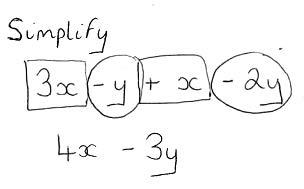 Simplify
3x - y + x - 2y
4x - 3y